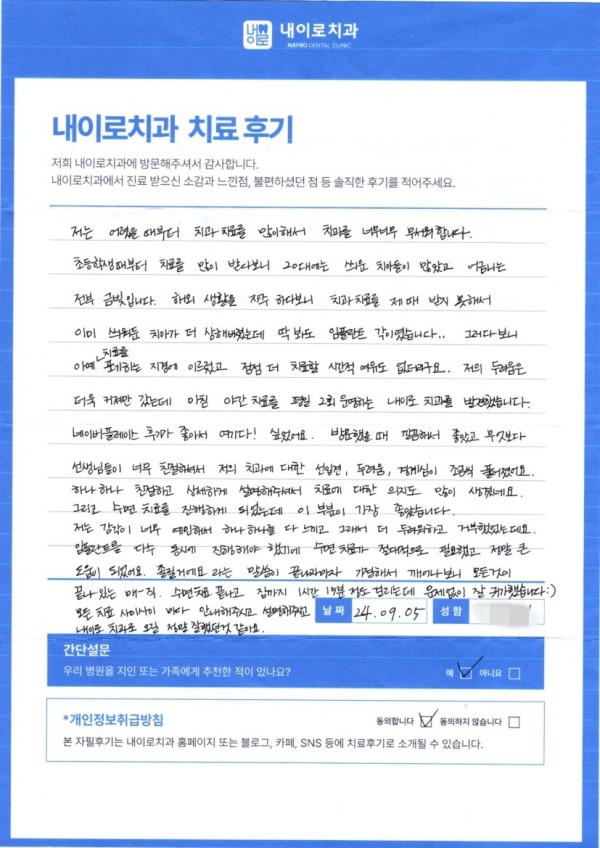 내이로
내이로치과
NAYRO DENTAL CLINIC
내이로치과 치료 후기
저희 내이로치과에 방문해주셔서 감사합니다.
내이로치과에서 진료 받으신 소감과 느낀점, 불편하셨던 점 등 솔직한 후기를 적어주세요.
저는 어렸을 때부터 치과 치료를 많이해서 치과를 너무너무 무서워합니다.
초등학생때부터 치료를 많이 받다보니 20대에는 씌운 치아들이 많았고 어금니는
전부 금빛입니다. 해외 생활을 자주 하다보니 치과치료를 제 때 받지 못해서
이미 씌워둔 치아가 더 상해버렸는데 딱 봐도 임플란트 각이였습니다.. 그러다보니
아예 치료를 포기하는 지경에 이르렀고 점점 더 치료할 시간적 여유도 없더라구요. 저의 두려움은
더욱 커져만 갔는데 마침 야간 치료를 평일 2회 운영하는 내이로 치과를 발견했습니다.
네이버플레이스 후기가 좋아서 여기다! 싶었어요. 방문했을 때 깔끔해서 좋았고 무엇보다
선생님들이 너무 친절하셔서 저의 치과에 대한 선입견, 두려움, 경계심이 조금씩 풀어졌어요.
하나하나 친절하고 상세하게 설명해주셔서 치료에 대한 의지도 많이 생겼네요.
그리고 수면 치료를 진행하게 되었는데 이 부분이 가장 좋았습니다.
저는 감각이 너무 예민해서 하나하나를 다 느끼고 그래서 더 두려워하고 거부했었는데요.
임플란트를 다수 동시에 진행해야 했기에 수면 치료가 절대적으로 필요했고 정말 큰
도움이 되었어요. 졸릴거에요 라는 말씀이 끝나자마자 기절해서 깨어나보니 모든것이
끝나 있는 매-직. 수면치료 끝나고 집까지 1시간 15분 정도 걸리는데 문제없이 잘 귀가했습니다:)
모든 치료 사이사이 마다 안내해주시고 설명해주시고
내이로 치과로 오길 정말 잘했던것 같아요.
날 짜 24.09.05 성 함
간단설문
우리 병원을 지인 또는 가족에게 추천한 적이 있나요? 예 아니요
*개인정보취급방침 동의합니다 동의하지 않습니다
본 자필후기는 내이로치과 홈페이지 또는 블로그, 카페, SNS 등에 치료후기로 소개될 수 있습니다.